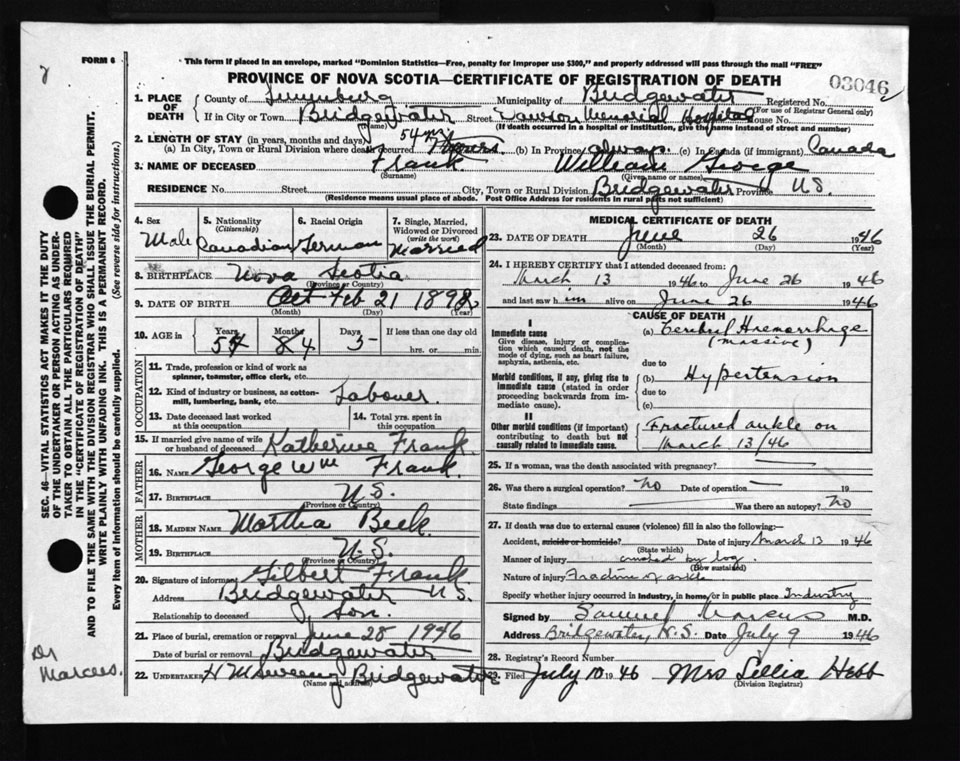 FORM 6
This form if placed in an envelope, marked "Dominion Statistics—Free, penalty for improper use $300," and properly addressed will pass through the mail "FREE"
PROVINCE OF NOVA SCOTIA—CERTIFICATE OF REGISTRATION OF DEATH
03046
1. PLACE OF DEATH
County of Lunenburg Municipality of Bridgewater Registered No.
(For use of Registrar General only)
If in City or Town Bridgewater Street Dawson Memorial Hospital House No.
(Name) (If death occurred in a hospital or institution, give the name instead of street and number)
2. LENGTH OF STAY (in years, months and days) 54 yrs
(a) In City, Town or Rural Division where death occurred (b) In Province always (c) In Canada (if immigrant) Canada
3. NAME OF DECEASED Frank William George
(Surname) (Given name or names)
RESIDENCE No. Street City, Town or Rural Division Bridgewater Province N.S.
(Residence means usual place of abode. Post Office Address for residents in rural parts not sufficient)
4. Sex Male
5. Nationality (Citizenship) Canadian
6. Racial Origin German
7. Single, Married, Widowed or Divorced (write the word) Married
8. BIRTHPLACE Nova Scotia
(Province or Country)
9. DATE OF BIRTH Oct Feb 21 1892
(Month) (Day) (Year)
10. AGE in Years 54 Months 8 4 Days 5 If less than one day old hrs. or min.
OCCUPATION
11. Trade, profession or kind of work as spinner, teamster, office clerk, etc.
12. Kind of industry or business, as cotton-mill, lumbering, bank, etc. Labourer.
13. Date deceased last worked at this occupation
14. Total yrs. spent in this occupation
15. If married give name of wife or husband of deceased Katherine Frank
FATHER
16. NAME George Wm Frank.
17. BIRTHPLACE N.S.
(Province or Country)
MOTHER
18. MAIDEN NAME Martha Beck.
19. BIRTHPLACE N.S.
(Province or Country)
20. Signature of informant Gilbert Frank
Address Bridgewater N.S.
Relationship to deceased Son.
21. Place of burial, cremation or removal June 28 1946
Date of burial or removal Bridgewater
22. UNDERTAKER Bridgewater
(Name and address)
MEDICAL CERTIFICATE OF DEATH
23. DATE OF DEATH June 26 1946
(Month) (Day) (Year)
24. I HEREBY CERTIFY that I attended deceased from:
March 13 1946 to June 26 1946
and last saw him alive on June 26 1946
CAUSE OF DEATH
I
Immediate cause
Give disease, injury or complication which caused death, not the mode of dying, such as heart failure, asphyxia, asthenia, etc.
(a) Cerebral Haemorrhage
(massive)
due to
Morbid conditions, if any, giving rise to immediate cause (stated in order proceeding backwards from immediate cause).
(b) Hypertension
due to
(c)
II
Other morbid conditions (if important) contributing to death but not causally related to immediate cause.
Fractured ankle on
March 13/46
25. If a woman, was the death associated with pregnancy?
26. Was there a surgical operation? No Date of operation 19
State findings Was there an autopsy? No
27. If death was due to external causes (violence) fill in also the following:—
Accident, suicide or homicide? Date of injury March 13 1946
(State which)
Manner of injury crushed by log
(How sustained)
Nature of injury Fracture of ankle
Specify whether injury occurred in Industry, in home, or in public place Industry
Signed by Samuel Marcus M.D.
Address Bridgewater, N.S. Date July 9 1946
28. Registrar's Record Number
29. Filed July 10 1946 Mrs Lellia Hebb
(Division Registrar)
SEC. 46—VITAL STATISTICS ACT MAKES IT THE DUTY OF THE UNDERTAKER OR PERSON ACTING AS UNDERTAKER TO OBTAIN ALL THE PARTICULARS REQUIRED IN THE "CERTIFICATE OF REGISTRATION OF DEATH" AND TO FILE THE SAME WITH THE DIVISION REGISTRAR WHO SHALL ISSUE THE BURIAL PERMIT.
WRITE PLAINLY WITH UNFADING INK. THIS IS A PERMANENT RECORD.
Every item of information should be carefully supplied. (See reverse side for instructions.)
Dr
Marcus.